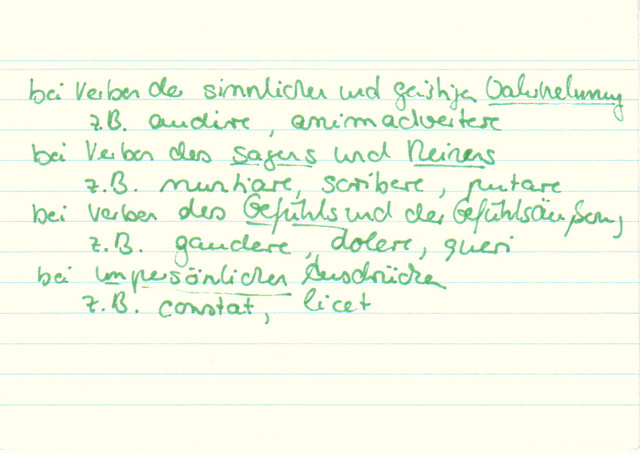 bei Verben der sinnlichen und geistigen Wahrnehmung
z.B. audire, animadvertere
bei Verben des Sagens und Meinens
z.B. nuntiare, scribere, putare
bei Verben des Gefühls und der Gefühlsäußerung
z.B. gaudere, dolere, queri
bei unpersönlichen Ausdrücken
z.B. constat, licet